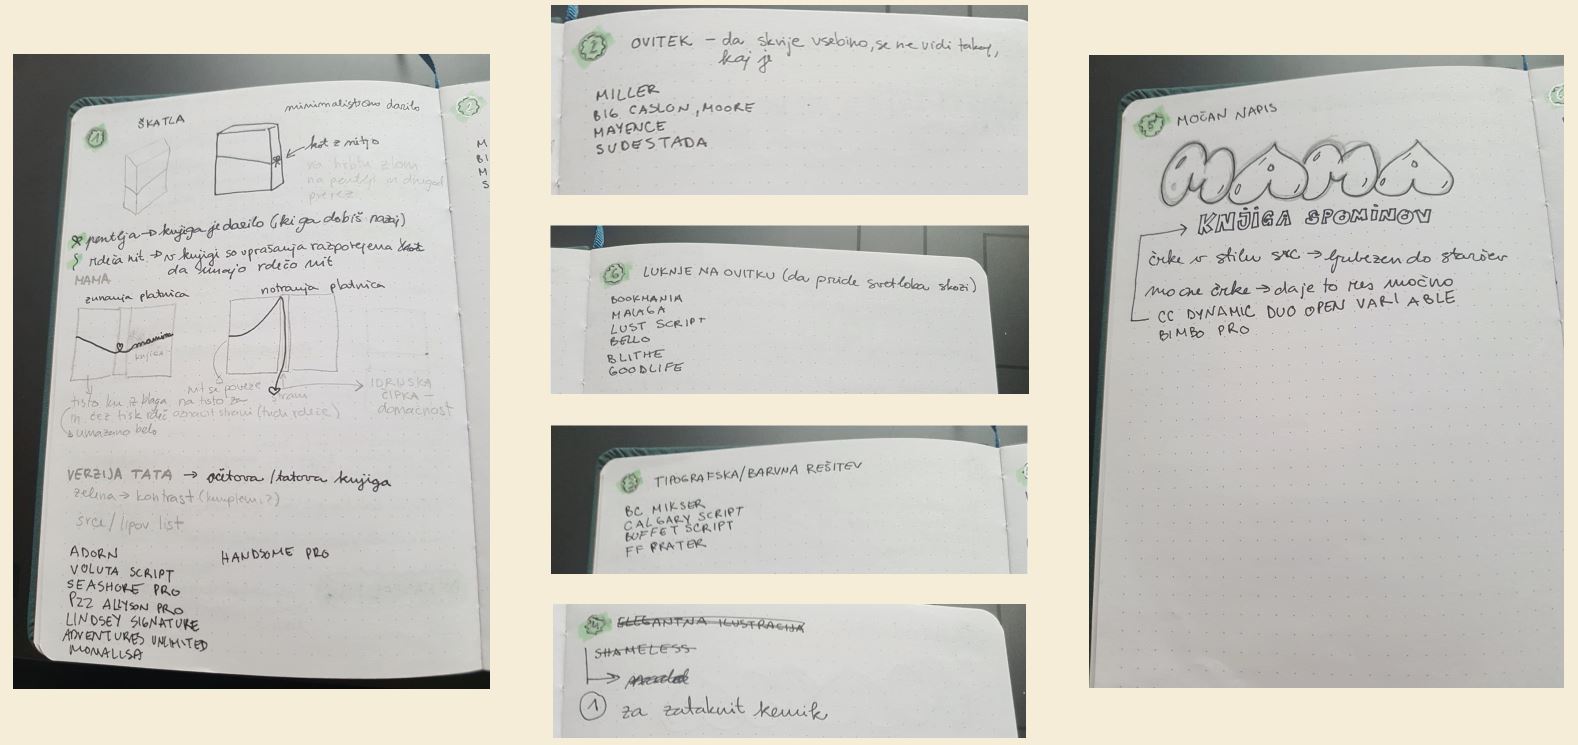 1 ŠKATLA
minimalistično darilo
kot z nitjo
na hrbtu zlom
na pentlji in drugod
prerez
pentlja → knjiga je darilo (ki ga dobiš nazaj)
rdeča nit → v knjigi so vprašanja razporejena
da imajo rdečo nit
MAMA
zunanja platnica
notranja platnica
mamina
knjiga
nit se poveže
na tisto za
strani
IDRIJSKA
ČIPKA –
domačnost
tisto iz blaga
označit strani (tudi rdeče)
umazano belo
VERZIJA TATA → očitova / tatova knjiga
zelena → kontrast
srce / lipov list
ADORN
HANDSOME PRO
VOLUTA SCRIPT
SEASHORE PRO
PZZ ALLYSON PRO
LINDSEY SIGNATURE
ADVENTURES UNLIMITED
MONALISA
2
M
BI
M
S
2 OVITEK – da skrije vsebino, se ne vidi takoj,
kaj je
MILLER
BIG CASLON, MOORE
MAYENCE
SUDESTADA
6 LUKNJE NA OVITKU (da pride svetloba skozi)
BOOKMANIA
MALAGA
LUST SCRIPT
BELLO
BLITHE
GOODLIFE
3 TIPOGRAFSKA/BARVNA REŠITEV
BC MIKSER
CALGARY SCRIPT
BUFFET SCRIPT
FF PRATER
4 ELEGANTNA ILUSTRACIJA
SHAMELESS
1 za zataknit kemik
5 MOČAN NAPIS
MAMA
KNJIGA SPOMINOV
črke v stilu src → ljubezen do staršev
močne črke → daje to res močno
CC DYNAMIC DUO OPEN VARIABLE
BIMBO PRO